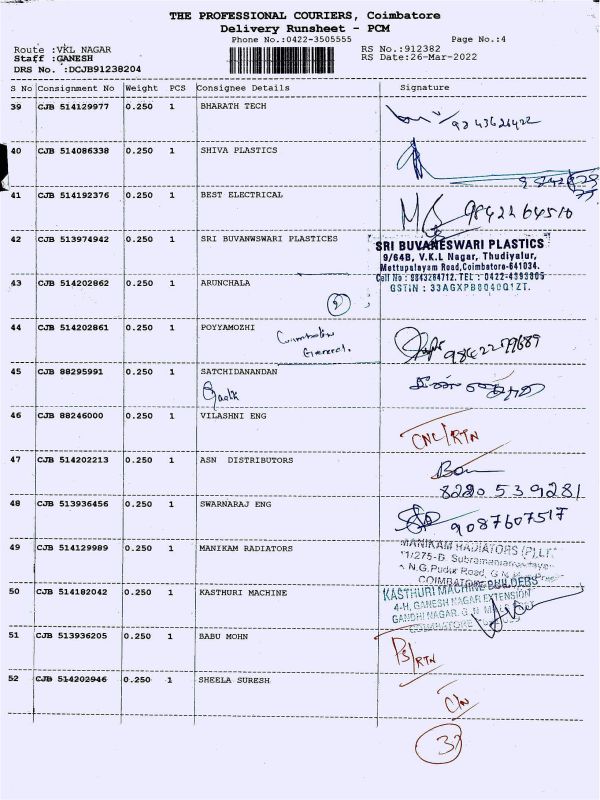 THE PROFESSIONAL COURIERS, Coimbatore
Delivery Runsheet - PCM
Phone No.:0422-3505555 Page No.:4
Route :VKL NAGAR RS No.:912382
Staff :GANESH RS Date:26-Mar-2022
DRS No. :DCJB91238204
S No Consignment No Weight PCS Consignee Details Signature
39 CJB 514129977 0.250 1 BHARATH TECH
40 CJB 514086338 0.250 1 SHIVA PLASTICS
41 CJB 514192376 0.250 1 BEST ELECTRICAL 9842264510
42 CJB 513974942 0.250 1 SRI BUVANWSWARI PLASTICES
SRI BUVANESWARI PLASTICS
9/64B, V.K.L Nagar, Thudiyalur,
Mettupalayam Road, Coimbatore-641034.
Cell No : 9843284712. TEL : 0422-4393805
GSTIN : 33AGXPB8040Q1ZT.
43 CJB 514202862 0.250 1 ARUNCHALA
44 CJB 514202861 0.250 1 POYYAMOZHI
Coimbatore
General.
9842279689
45 CJB 88295991 0.250 1 SATCHIDANANDAN
46 CJB 88246000 0.250 1 VILASHNI ENG CNL/RTN
47 CJB 514202213 0.250 1 ASN DISTRIBUTORS
8220539281
48 CJB 513936456 0.250 1 SWARNARAJ ENG 9087607517
49 CJB 514129989 0.250 1 MANIKAM RADIATORS
MANIKAM RADIATORS (P) LT
11/275-D, Subramaniampalayam
N.G.Pudur Road, G.N.
COIMBATORE
50 CJB 514182042 0.250 1 KASTHURI MACHINE
KASTHURI MACHINE BUILDERS
4-H, GANESH NAGAR EXTENSION
GANDHI NAGAR, G. N. MILLS
COIMBATORE
51 CJB 513936205 0.250 1 BABU MOHN /RTN
52 CJB 514202946 0.250 1 SHEELA SURESH